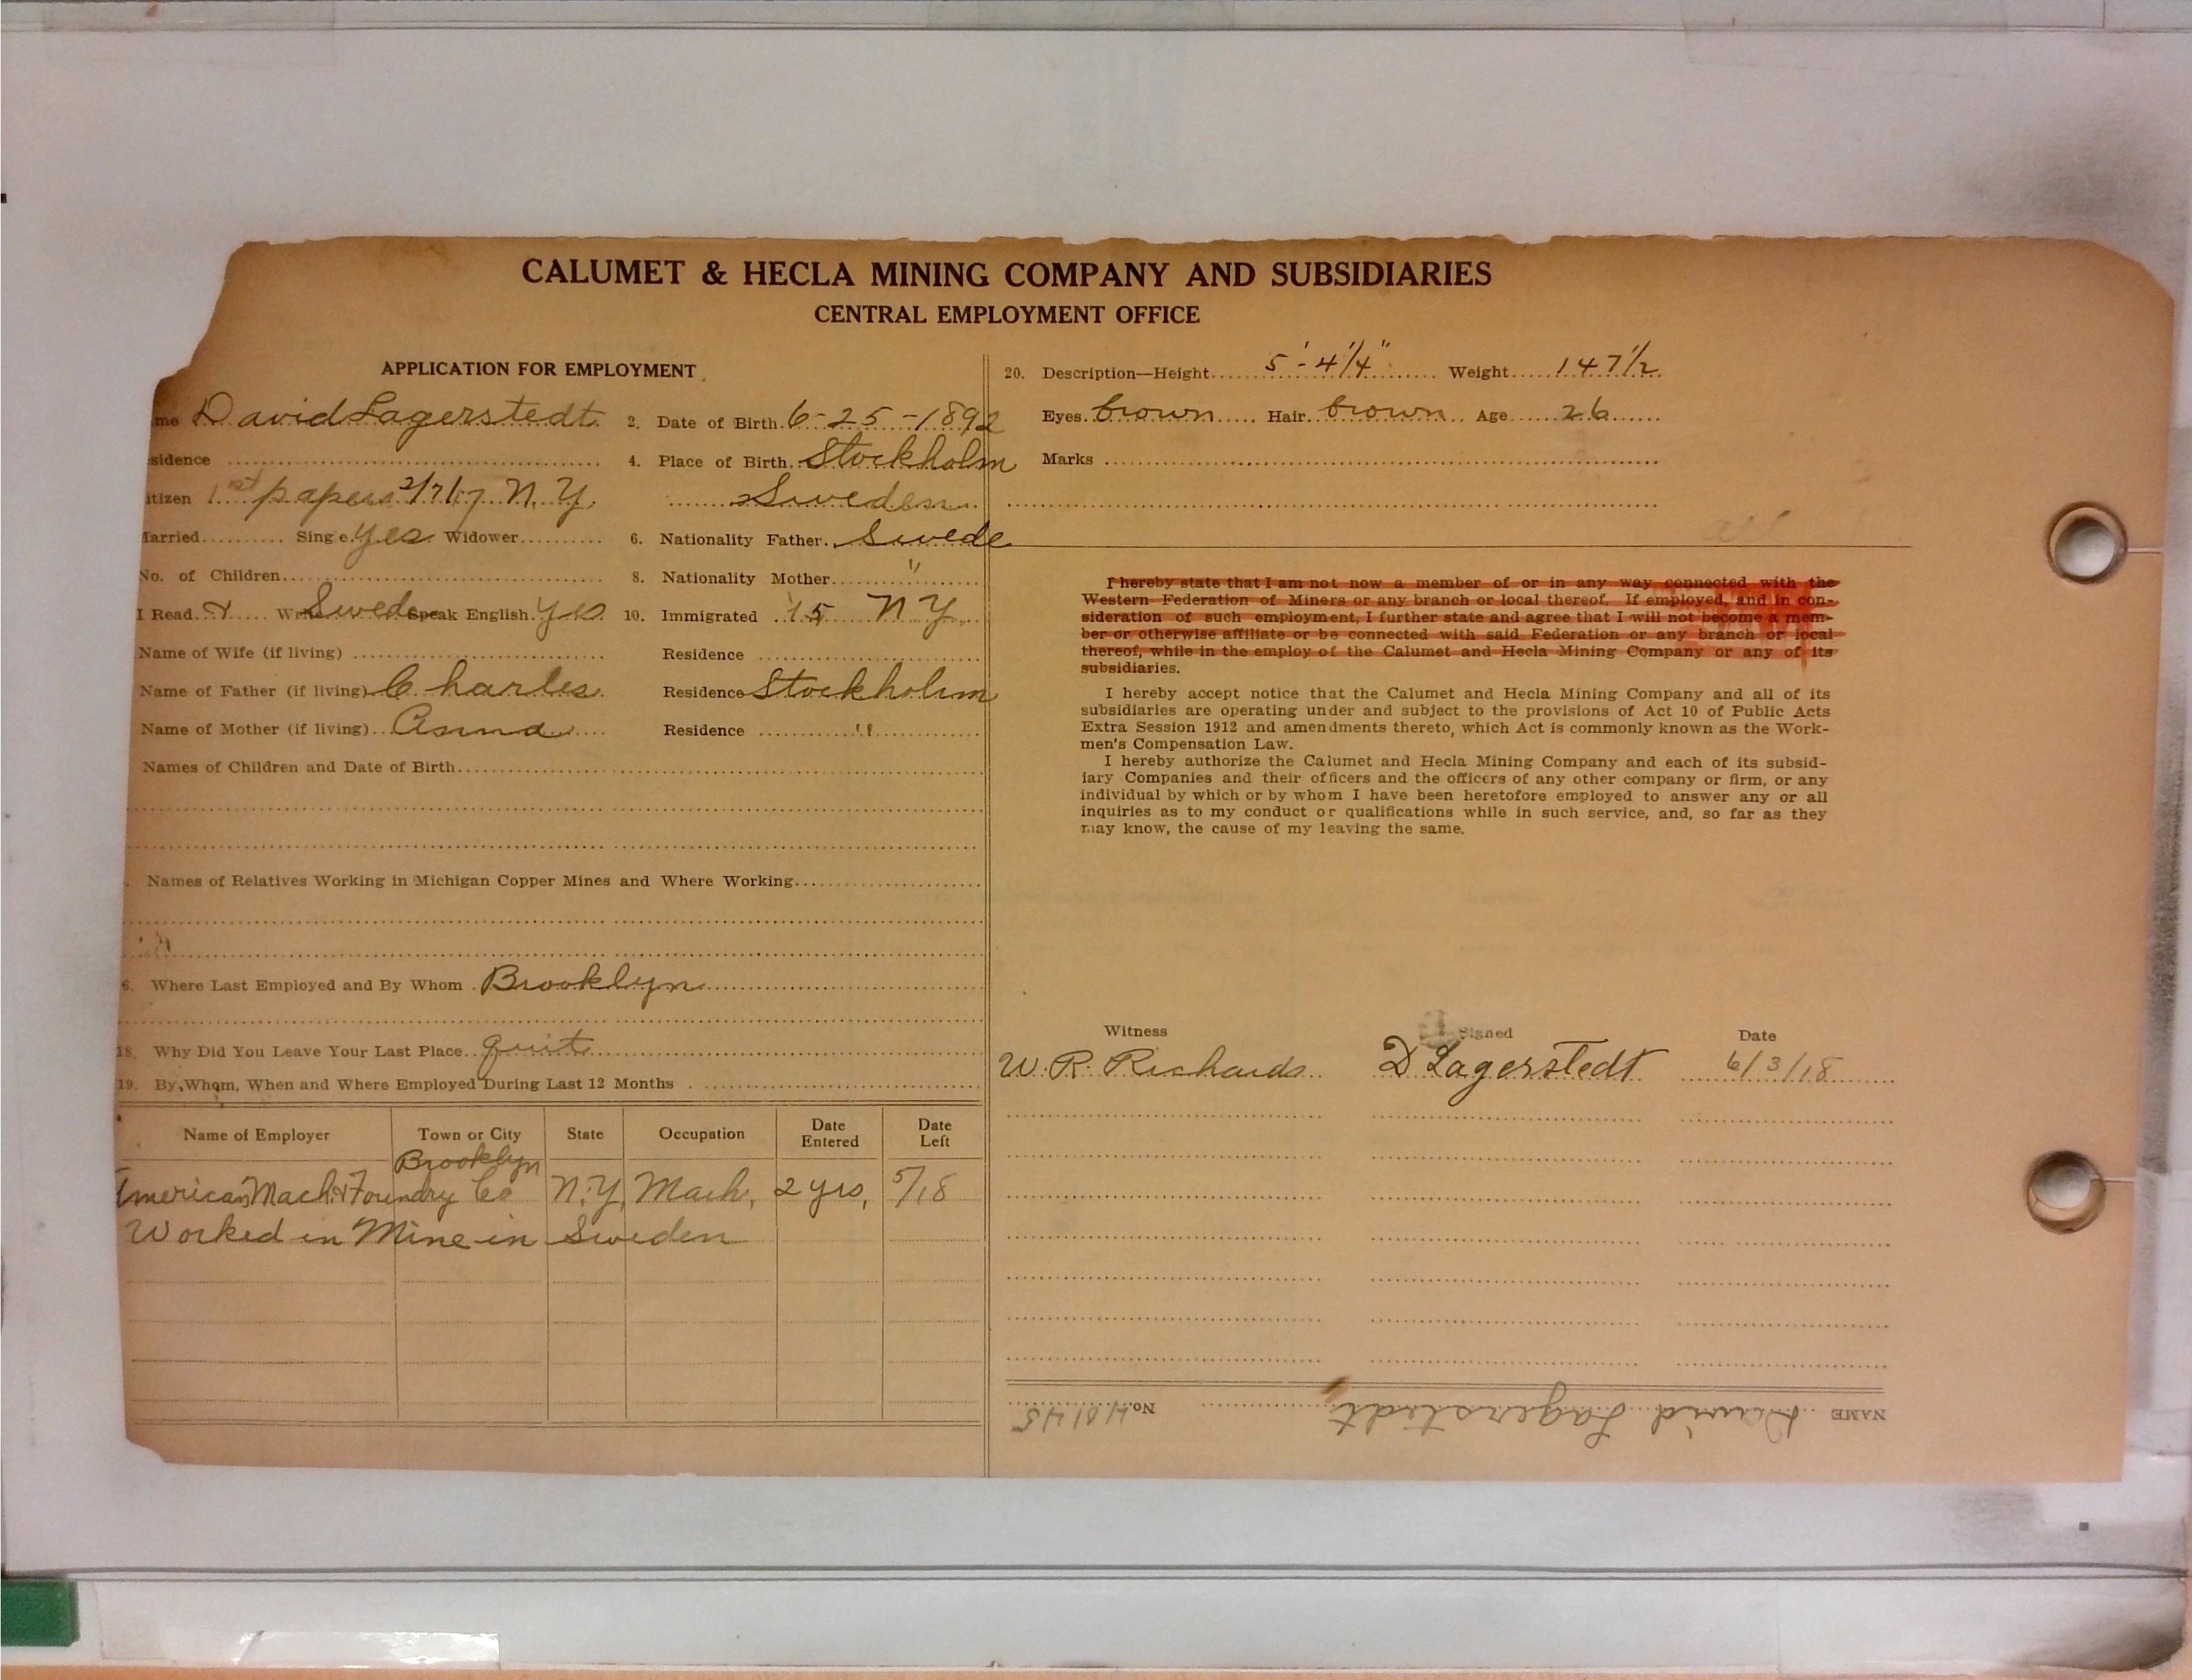 CALUMET & HECLA MINING COMPANY AND SUBSIDIARIES
CENTRAL EMPLOYMENT OFFICE
APPLICATION FOR EMPLOYMENT
me David Lagerstedt 2. Date of Birth. 6-25-1892
sidence 4. Place of Birth. Stockholm
itizen 1st papers 2/7/17 N.Y. Sweden
Married Sing e. Yes Widower 6. Nationality Father. Swede
No. of Children 8. Nationality Mother "
I Read & Write Swede Speak English. Yes 10. Immigrated '15 N Y
Name of Wife (if living) Residence
Name of Father (if living) Charles Residence Stockholm
Name of Mother (if living) Anna Residence "
Names of Children and Date of Birth
Names of Relatives Working in Michigan Copper Mines and Where Working
6. Where Last Employed and By Whom Brooklyn
18. Why Did You Leave Your Last Place quit
19. By Whom, When and Where Employed During Last 12 Months
Name of Employer Town or City State Occupation Date Entered Date Left
Brooklyn
American Mach & Foundry Co N.Y. Mach. 2 yrs, 5/18
Worked in Mine in Sweden
20. Description—Height 5'-4 1/4" Weight 147 1/2
Eyes brown Hair brown Age 26
Marks
I hereby state that I am not now a member of or in any way connected with the
Western Federation of Miners or any branch or local thereof. If employed, and in con-
sideration of such employment, I further state and agree that I will not become a mem-
ber or otherwise affiliate or be connected with said Federation or any branch or local
thereof, while in the employ of the Calumet and Hecla Mining Company or any of its
subsidiaries.
I hereby accept notice that the Calumet and Hecla Mining Company and all of its
subsidiaries are operating under and subject to the provisions of Act 10 of Public Acts
Extra Session 1912 and amendments thereto, which Act is commonly known as the Work-
men's Compensation Law.
I hereby authorize the Calumet and Hecla Mining Company and each of its subsid-
iary Companies and their officers and the officers of any other company or firm, or any
individual by which or by whom I have been heretofore employed to answer any or all
inquiries as to my conduct or qualifications while in such service, and, so far as they
may know, the cause of my leaving the same.
Witness Signed Date
W. R. Richards D Lagerstedt 6/3/18
NAME David Lagerstedt No. 48145